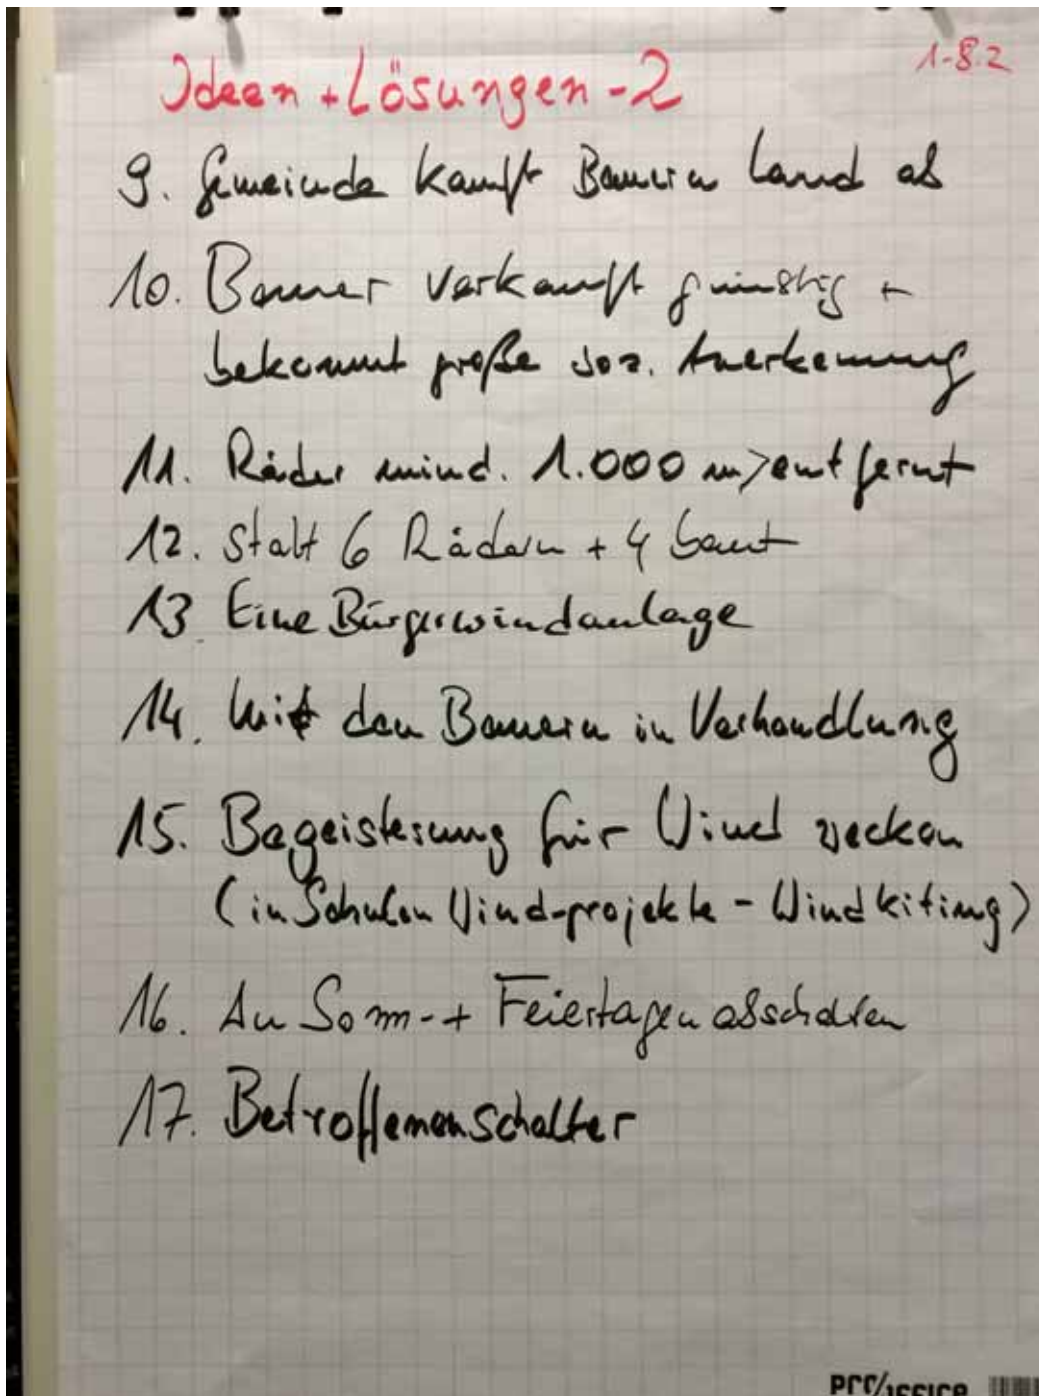 1-8.2
Ideen + Lösungen - 2
9. Gemeinde kauft Bauern Land ab
10. Bauer verkauft günstig +
bekommt große soz. Anerkennung
11. Räder mind. 1.000 m > entfernt
12. Statt 6 Rädern + 4 baut
13. Eine Bürgerwindanlage
14. Mit den Bauern in Verhandlung
15. Begeisterung für Wind wecken
(in Schulen Wind-projekte - Windkiting)
16. An Sonn- + Feiertagen abschalten
17. Betroffenenschalter